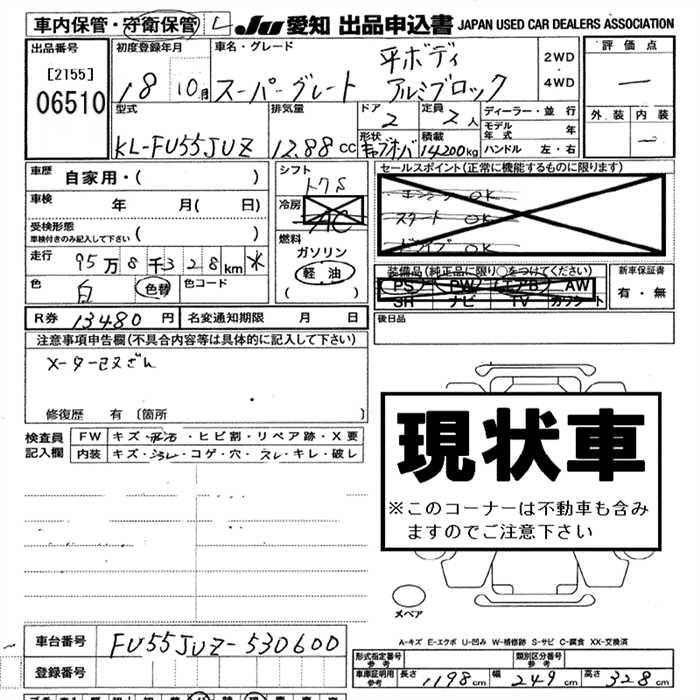 車内保管・守衛保管 L JU 愛知 出品申込書 JAPAN USED CAR DEALERS ASSOCIATION
出品番号 初度登録年月 車名・グレード 平ボディ 2WD 評価点
[2155] 18 10月 スーパーグレート アルミブロック 4WD
06510
型式 排気量 ドア 2 定員 2人 ディーラー・並行 外装 内装
モデル年式 年
KL-FU55JUZ 12.88cc 形状 積載 14200kg ハンドル 左・右
車歴 自家用・( ) シフト セールスポイント(正常に機能するものに限ります)
車検 年 月( 日) 冷房 AC エンジン OK
スタート OK
受検形態 車検付きのみ記入して下さい ( ) 燃料 ドライブ OK
走行 95万8千328km ガソリン 装備品(純正品に限り○をつけてください) 新車保証書
色 白 色替 色コード 軽油 PS PW エアB AW 有・無
( ) SR ナビ TV カワシート
R券 13480円 名変通知期限 月 日 後日品
注意事項申告欄(不具合内容等は具体的に記入して下さい)
修復歴 有〔箇所 〕
現状車
※このコーナーは不動車も含み
ますのでご注意下さい
検査員 FW キズ・飛石・ヒビ割・リペア跡・X要
記入欄 内装 キズ・ヨゴレ・コゲ・穴・スレ・キレ・破レ
スペア
A-キズ E-エクボ U-凹み W-補修跡 S-サビ C-腐食 XX-交換済
車台番号 FU55JUZ-530600
登録番号 形式指定番号 参考 類別区分番号 参考
車庫証明用 参考 長さ 1198cm 幅 249cm 高さ 328cm